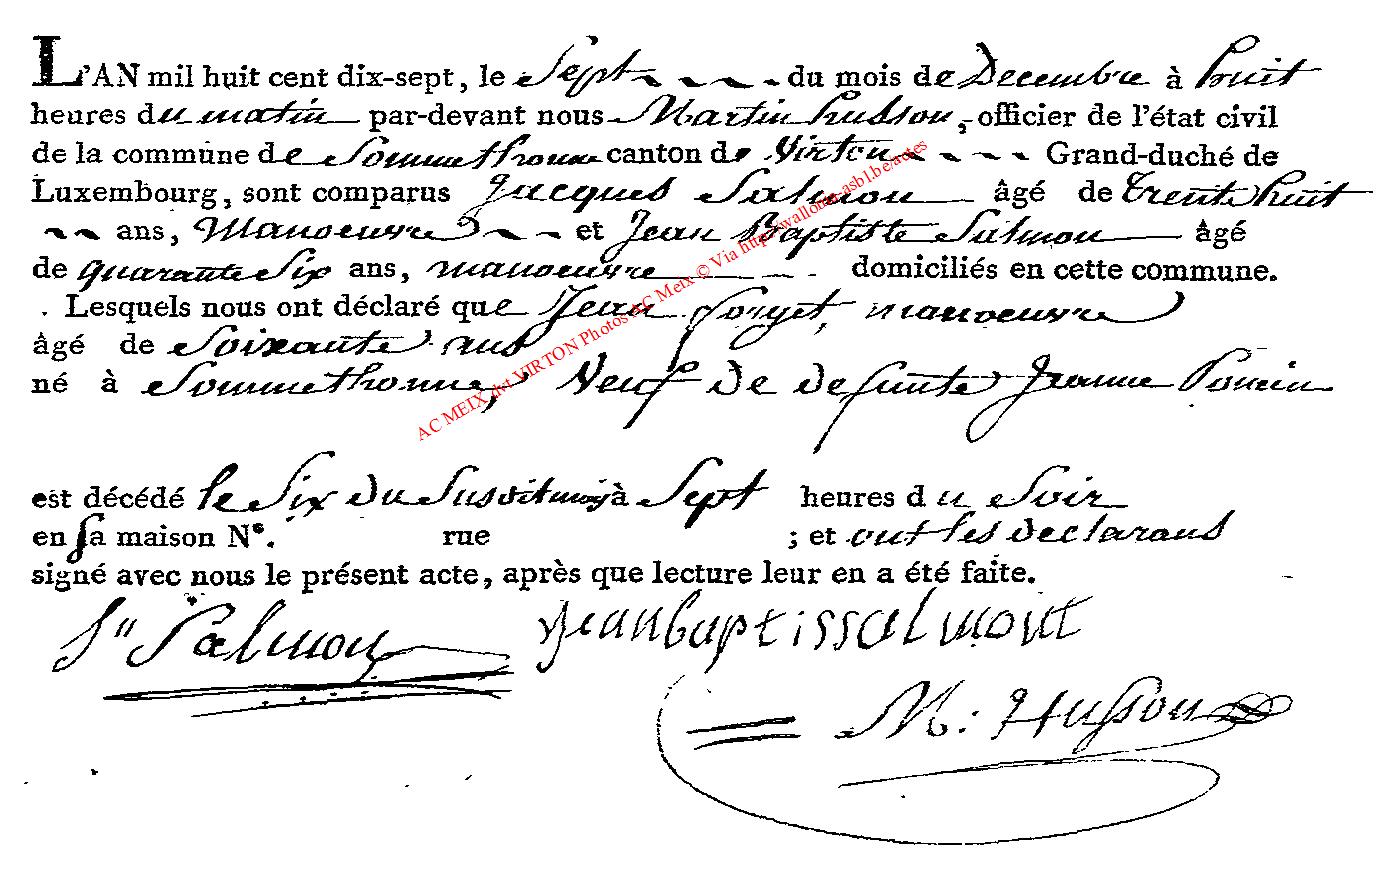 L'AN mil huit cent dix-sept, le Sept du mois de Decembre à huit
heures du matin par-devant nous Martin husson, officier de l'état civil
de la commune de Sommethonne canton de Virton Grand-duché de
Luxembourg, sont comparus Jacques Salmon âgé de trente huit
ans, Manoeuvre et Jean Baptiste Salmon âgé
de quarante Six ans, manoeuvre domiciliés en cette commune.
Lesquels nous ont déclaré que Jean forget, manoeuvre
âgé de Soixante ans
né à Sommethonne, Veuf de defunte Jeanne Poncin
est décédé le Six du Susdit mois à Sept heures du Soir
en sa maison N°. rue ; et ont les declarans
signé avec nous le présent acte, après que lecture leur en a été faite.
Salmon JeanbaptisSalmont
M: Husson
AC MEIX dvt VIRTON Photos AC Meix © Via http://wallonia-asbl.be/actes